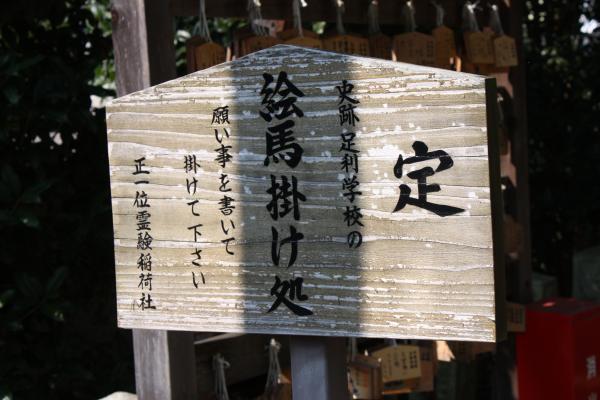 定
史跡足利学校の
絵馬掛け処
願い事を書いて
掛けて下さい
正一位霊験稲荷社